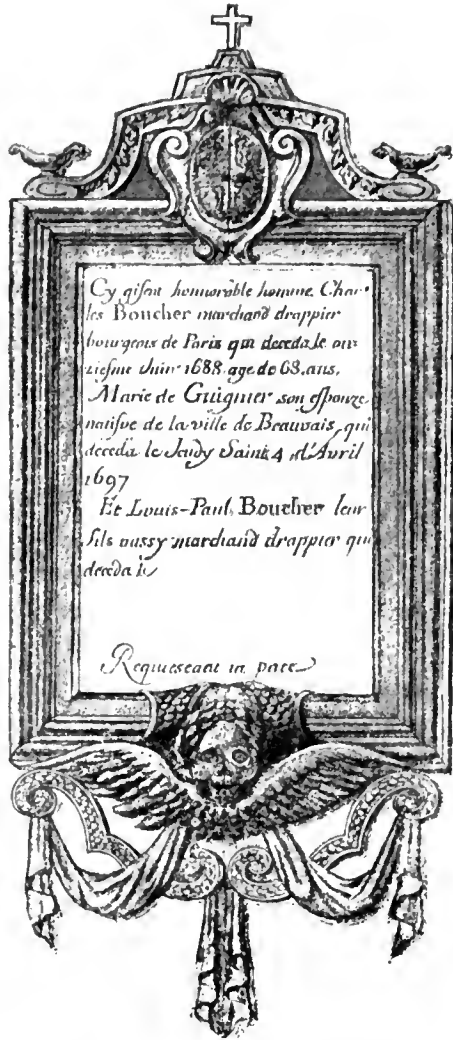 Cy gisent honnorable homme Char-
les Boucher marchand drappier
bourgeois de Paris qui deceda le on-
ziesme Juin 1688 age de 68 ans.
Marie de Guignier son espouze
naifve de la ville de Beauvais, qui
deceda le Jeudy Saint 4 d'Avril
1697
Et Louis-Paul Boucher leur
fils aussy marchand drappier qui
deceda le
Requiescant in pace